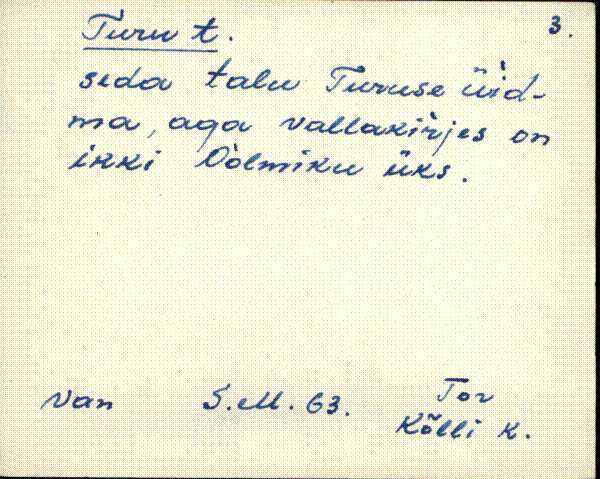 Turu t. 3.
seda talu Turuse üìd-
ma, aga vallakìrjes on
ikki Oòlmiku üks.
Van S.M. 63. Tor
Kõlli k.